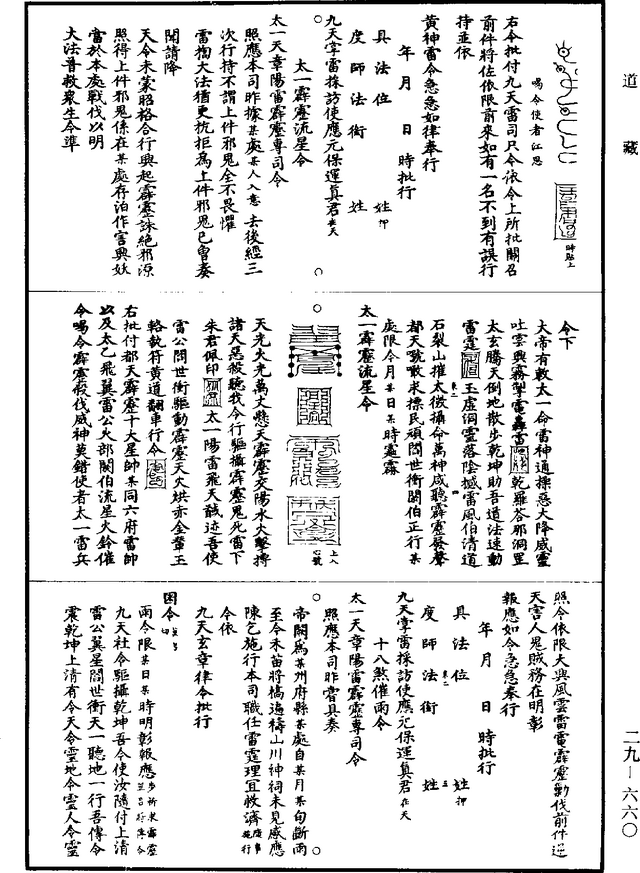 道藏
喝令使者江思
時點上
右令批付九天雷司只令依令上所批關召
前件將佐依限前來如有一名不到有誤行
持並依
黃神雷令急急如律奉行
年 月 日 時批行
具法位 姓 押
度師法銜 姓
九天宰雷採訪使應元保運真君在天
太一霹靂流星令
太一天章陽雷霹靂專司令
照應本司昨據某處某人入意 去後經三
次行持不謂上件邪鬼全不畏懼
雷掏大法猶更抗拒為上件邪鬼已曾奏
聞請降
天令未蒙昭格合行興起霹靂誅絕邪源
照得上件邪鬼係在某處存泊作害興妖
當於本處戰伐以明
大法普救衆生令準
令下
大帝有敕太一命雷神通捼惡大降威靈
吐雲興霧掣電轟雷 乾羅荅那洞罡
太玄騰天倒地散步乾坤助吾道法速動
雷霆 玉虛洞靈落陰撼雷風伯清道
石裂山摧太微攝命萬神咸聽霹靂發聲
都天號敢求摽民頑問世衝閼伯正行某
處限今月某日某時靈霖
太一霹靂流星令
上入
心號
天光火光萬丈懸天霹靂交陽水火擊搏
諸天惡被聽我令行驅攝霹靂鬼死雷下
朱君佩印 太一陽雷飛天馘迹吾使
雷公問世衝驅動霹靂天火烘赤金輦玉
輅執符黃道翻車行令
右批付都天霹靂十大星帥某同六府雷帥
以及太乙飛翼雷公火部閼伯流星火鈴催
令喝令霹靂殺伐威神莫錯使者太一雷兵
照令依限大興風雲雷電霹靂勦伐前件逆
天害人鬼賊務在明彰
報應如令急急奉行
年 月 日 時批行
具法位 姓 押
度師法銜 姓
九天宰雷採訪使應元保運真君在天
十八煞催雨令
太一天章陽雷霹靂專司令
照應本司昨嘗具奏
帝闕為某州府縣某處自某月某旬斷雨
至今禾苗將槁遍禱山川神祠未見感應
陳乞施行本司職任雷霆理宜救濟
令依
九天玄章律令批行
因令
雨令限某日某時明彰報應
九天社令驅攝乾坤吾今使汝隨付上清
雷公翼星問世衝天一聽地一行吾傳令
震乾坤上清有令天令靈地令靈人令靈
二九—六六〇